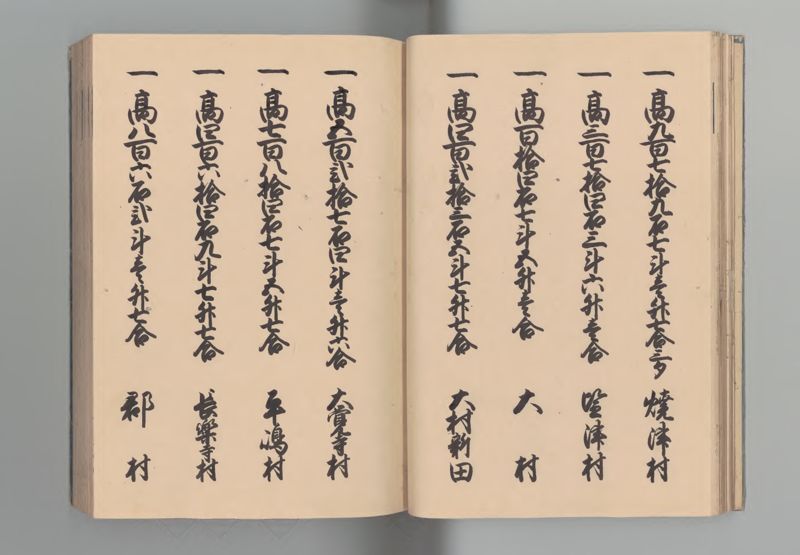 一高九百七拾九石七斗壱升七合三夕 焼津村
一高三百七拾四石三斗六升壱合 塩津村
一高百拾四石七斗五升壱合 大村
一高四百弐拾三石五斗七升七合 大村新田
一高五百弐拾七石四斗壱升六合 大覚寺村
一高七百八拾四石七斗五升七合 平嶋村
一高四百六拾四石九斗七升七合 長楽寺村
一高八百六石弐斗壱升七合 郡村